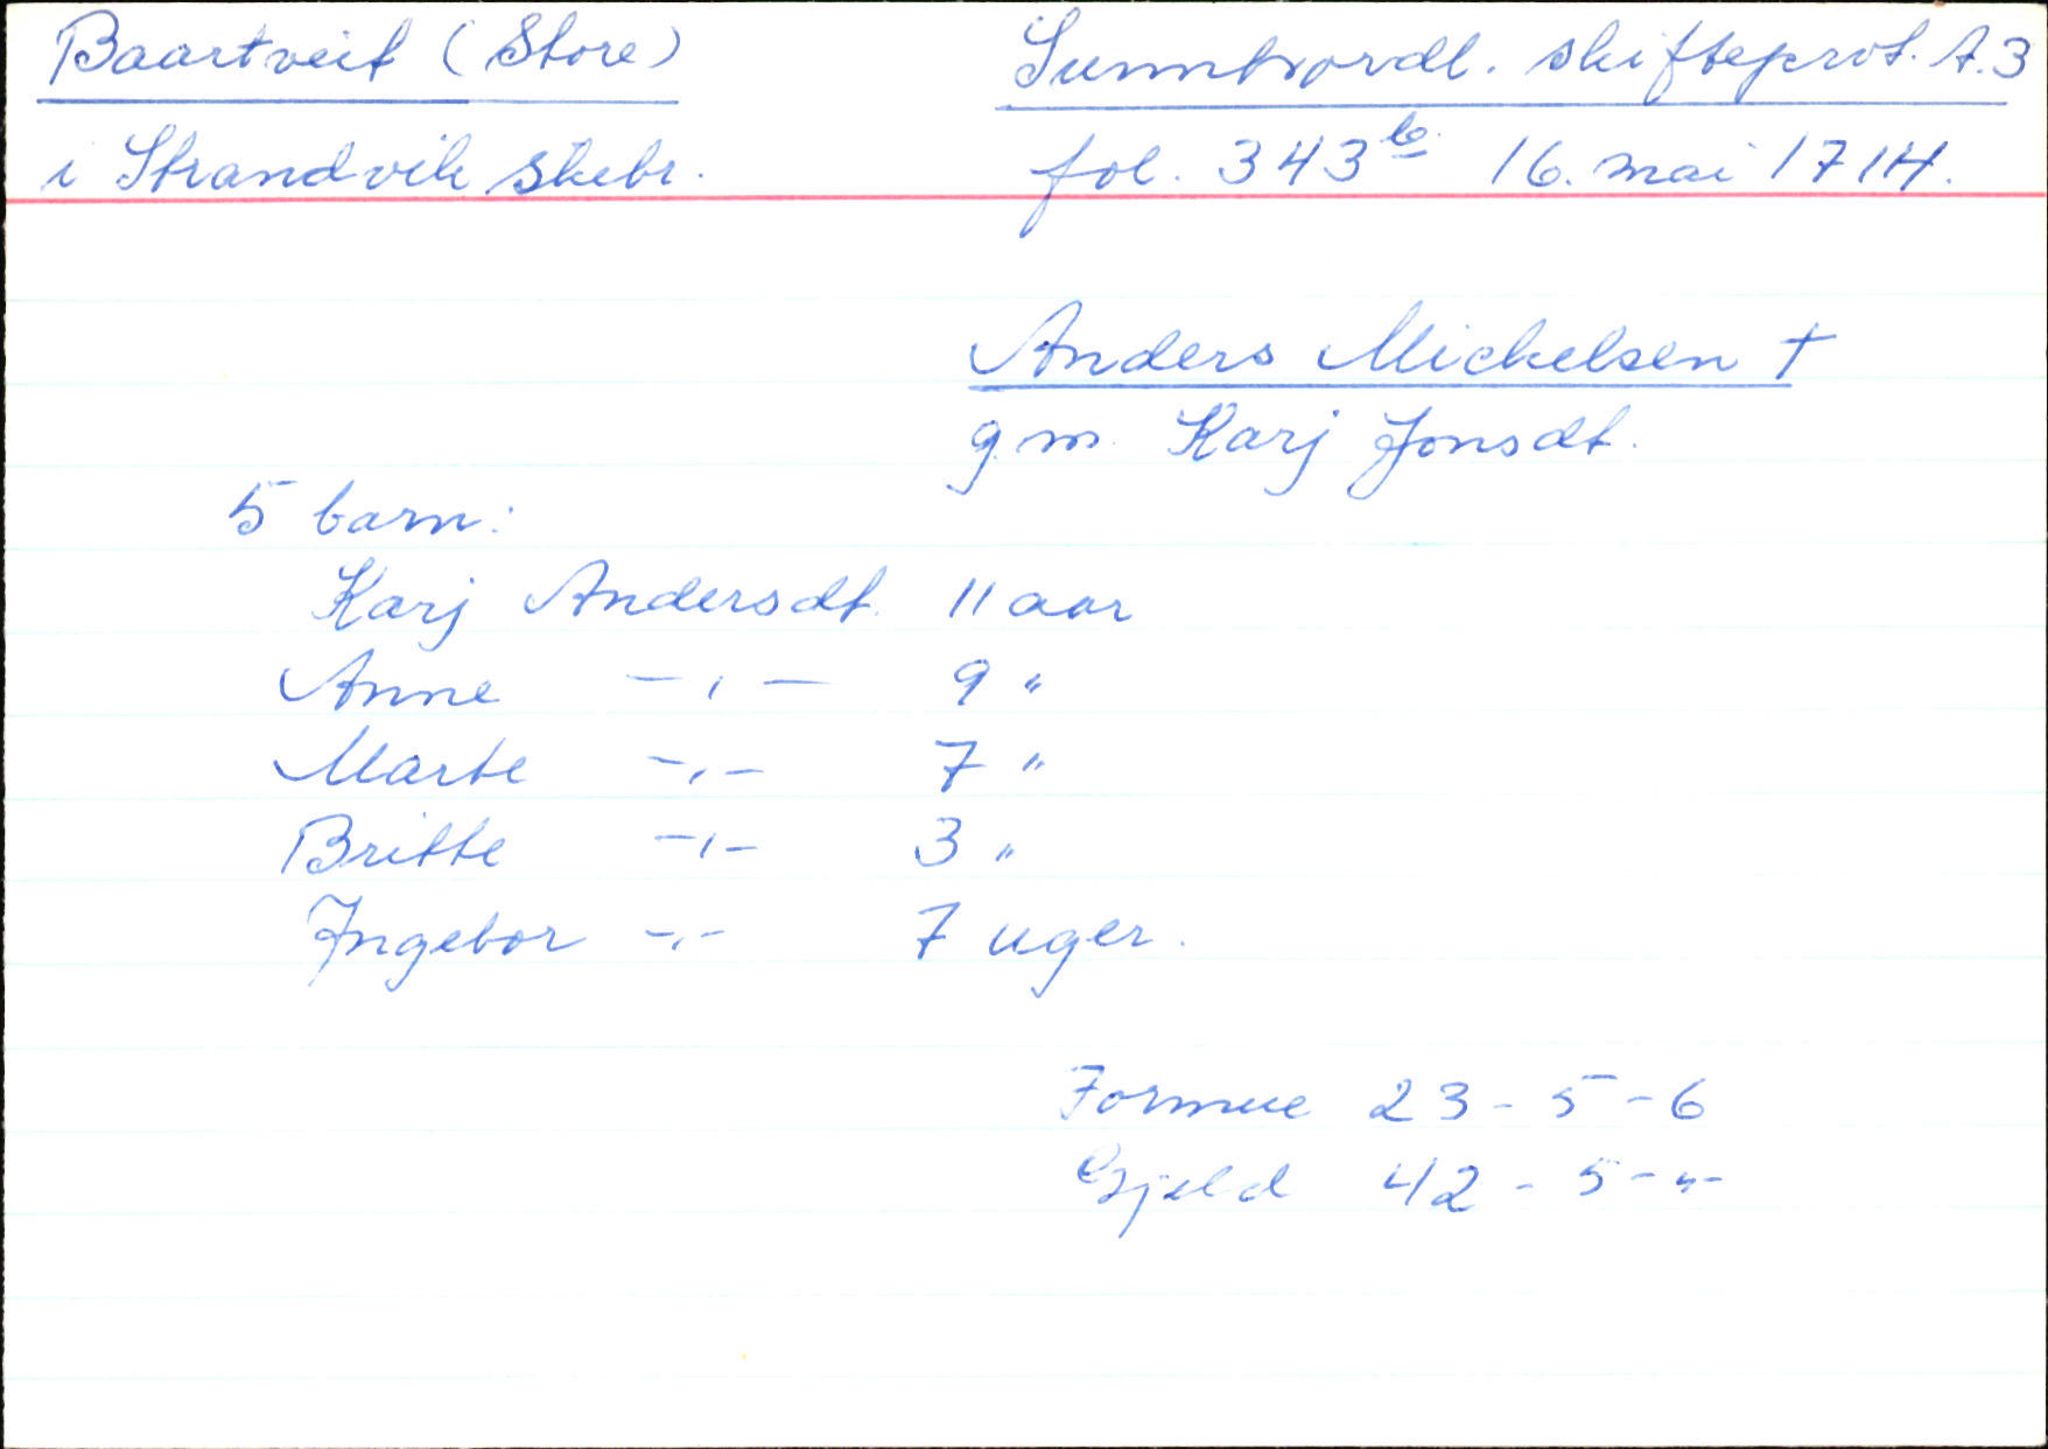 Baartveit (Store)
Sunnhordl. skifteprot. A.3
i Strandvik skebr.
fol. 343b 16. mai 1714.
Anders Mickelsen †
g.m. Karj Jonsdt.
5 barn:
Karj Andersdt. 11 aar
Anne —,— 9 "
Marte —,— 7 "
Britte —,— 3 "
Ingebor —,— 7 uger.
Formue 23 - 5 - 6
Gjeld 42 - 5 - "-